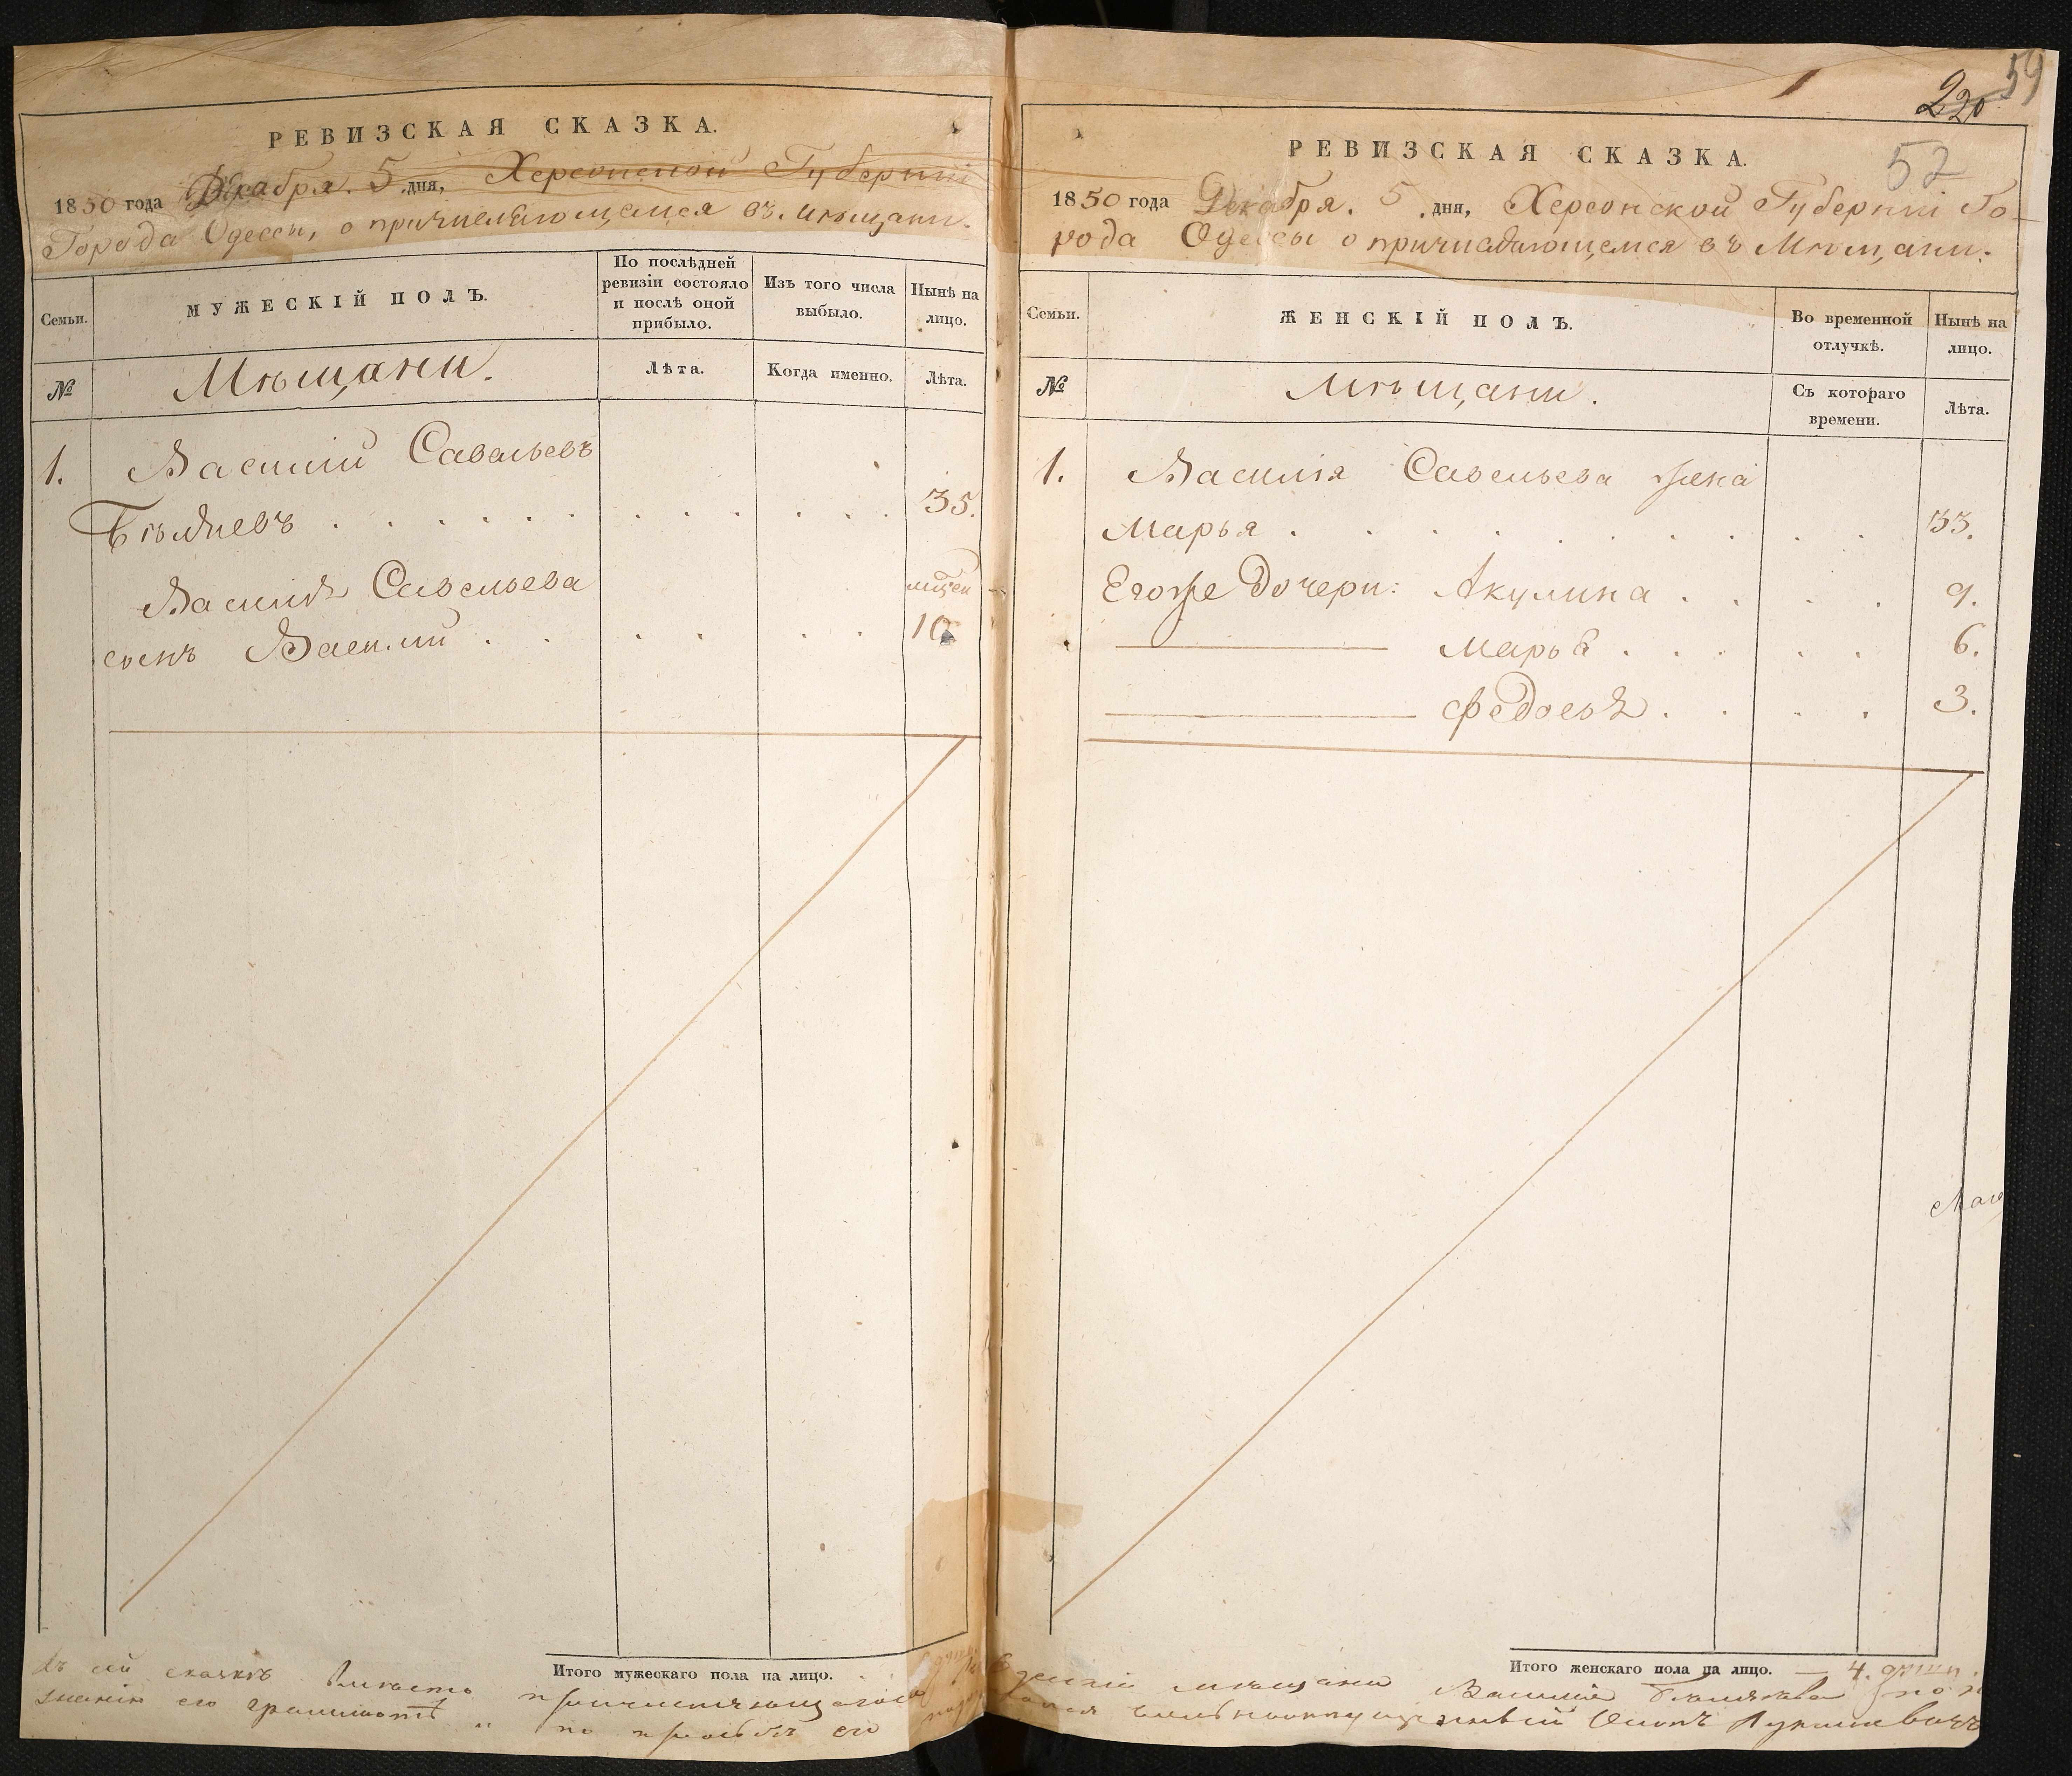 РЕВИЗСКАЯ СКАЗКА.
1850 года Декабря. 5 дня, Херсонской Губерніи
Города Одессы, о причисляющемся въ мѣщани.
Семьи.
МУЖЕСКІЙ ПОЛЪ.
По послѣдней
ревизіи состояло
и послѣ оной
прибыло.
Изъ того числа
выбыло.
Нынѣ на
лицо.
№
Мѣщани.
Лѣта.
Когда именно.
Лѣта.
1. Василій Савельевъ
Бѣляевъ . . . . . . . . . . . . 35.
Василія Савельева
сынъ Василій . . . . . . 10
Итого мужескаго пола на лицо.
Къ сей сказкѣ вмѣсто причисляющагося
знанію его грамотѣ по прозьбѣ его
59
220
52
РЕВИЗСКАЯ СКАЗКА.
1850 года Декабря. 5 дня, Херсонской Губерніи Го-
рода Одессы о причисляющемся въ Мѣщани.
Семьи.
ЖЕНСКІЙ ПОЛЪ.
Во временной
отлучкѣ.
Нынѣ на
лицо.
№
Мѣщани.
Съ котораго
времени.
Лѣта.
1. Василія Савельева жена
Марья . . . . . . . . . . 33.
Егоже Дочери: Акулина . . . . 9.
Марья . . . . . 6.
Федосья . . . . 3.
Итого женскаго пола на лицо. — 4. души.
мѣщани Василія